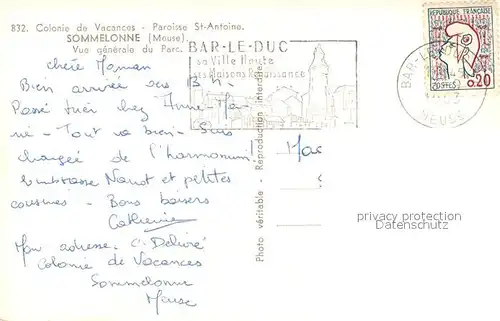 832. Colonie de Vacances - Paroisse St-Antoine.
SOMMELONNE (Meuse).
Vue générale du Parc.
BAR-LE-DUC
sa Ville Haute
ses Maisons Renaissance
REPUBLIQUE FRANÇAISE
POSTES 0.20
BAR-LE-DUC
MEUSE
chère Maman
Bien arrivée au B.
Passé nuit chez Anne-Ma-
rie - Tout va bien - Suis
chargée de l'harmonium!
Embrasse Nanot et petites
cousines - Bons baisers
Catherine
Mon adresse. C. Delivré
Colonie de Vacances
Sommelonne
Meuse
Photo véritable - Reproduction interdite
privacy protection
Datenschutz